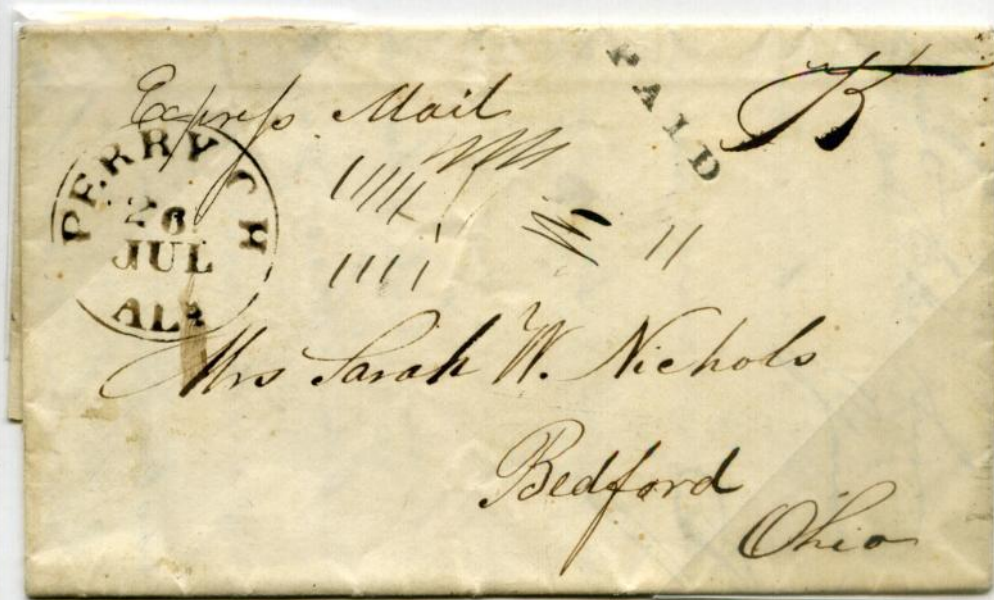 Express Mail
PAID
PERRY C.H.
26
JUL
ALA
11
Mrs Sarah W. Nichols
Bedford
Ohio